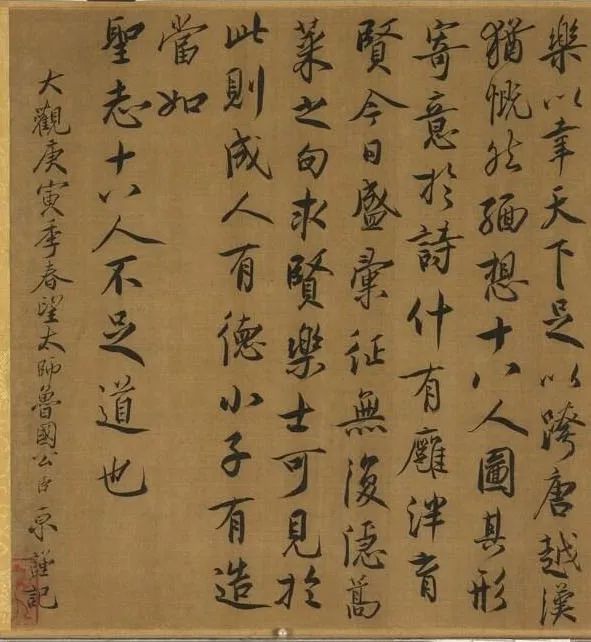 樂以幸天下足以跨唐越漢
猶慨然緬想十八人圖其形
寄意於詩什有廱泮育
賢今日盛彙征無復隱蒿
萊之句求賢樂士可見於
此則成人有德小子有造
當如
聖志十八人不足道也
大觀庚寅季春望太師魯國公臣京謹記